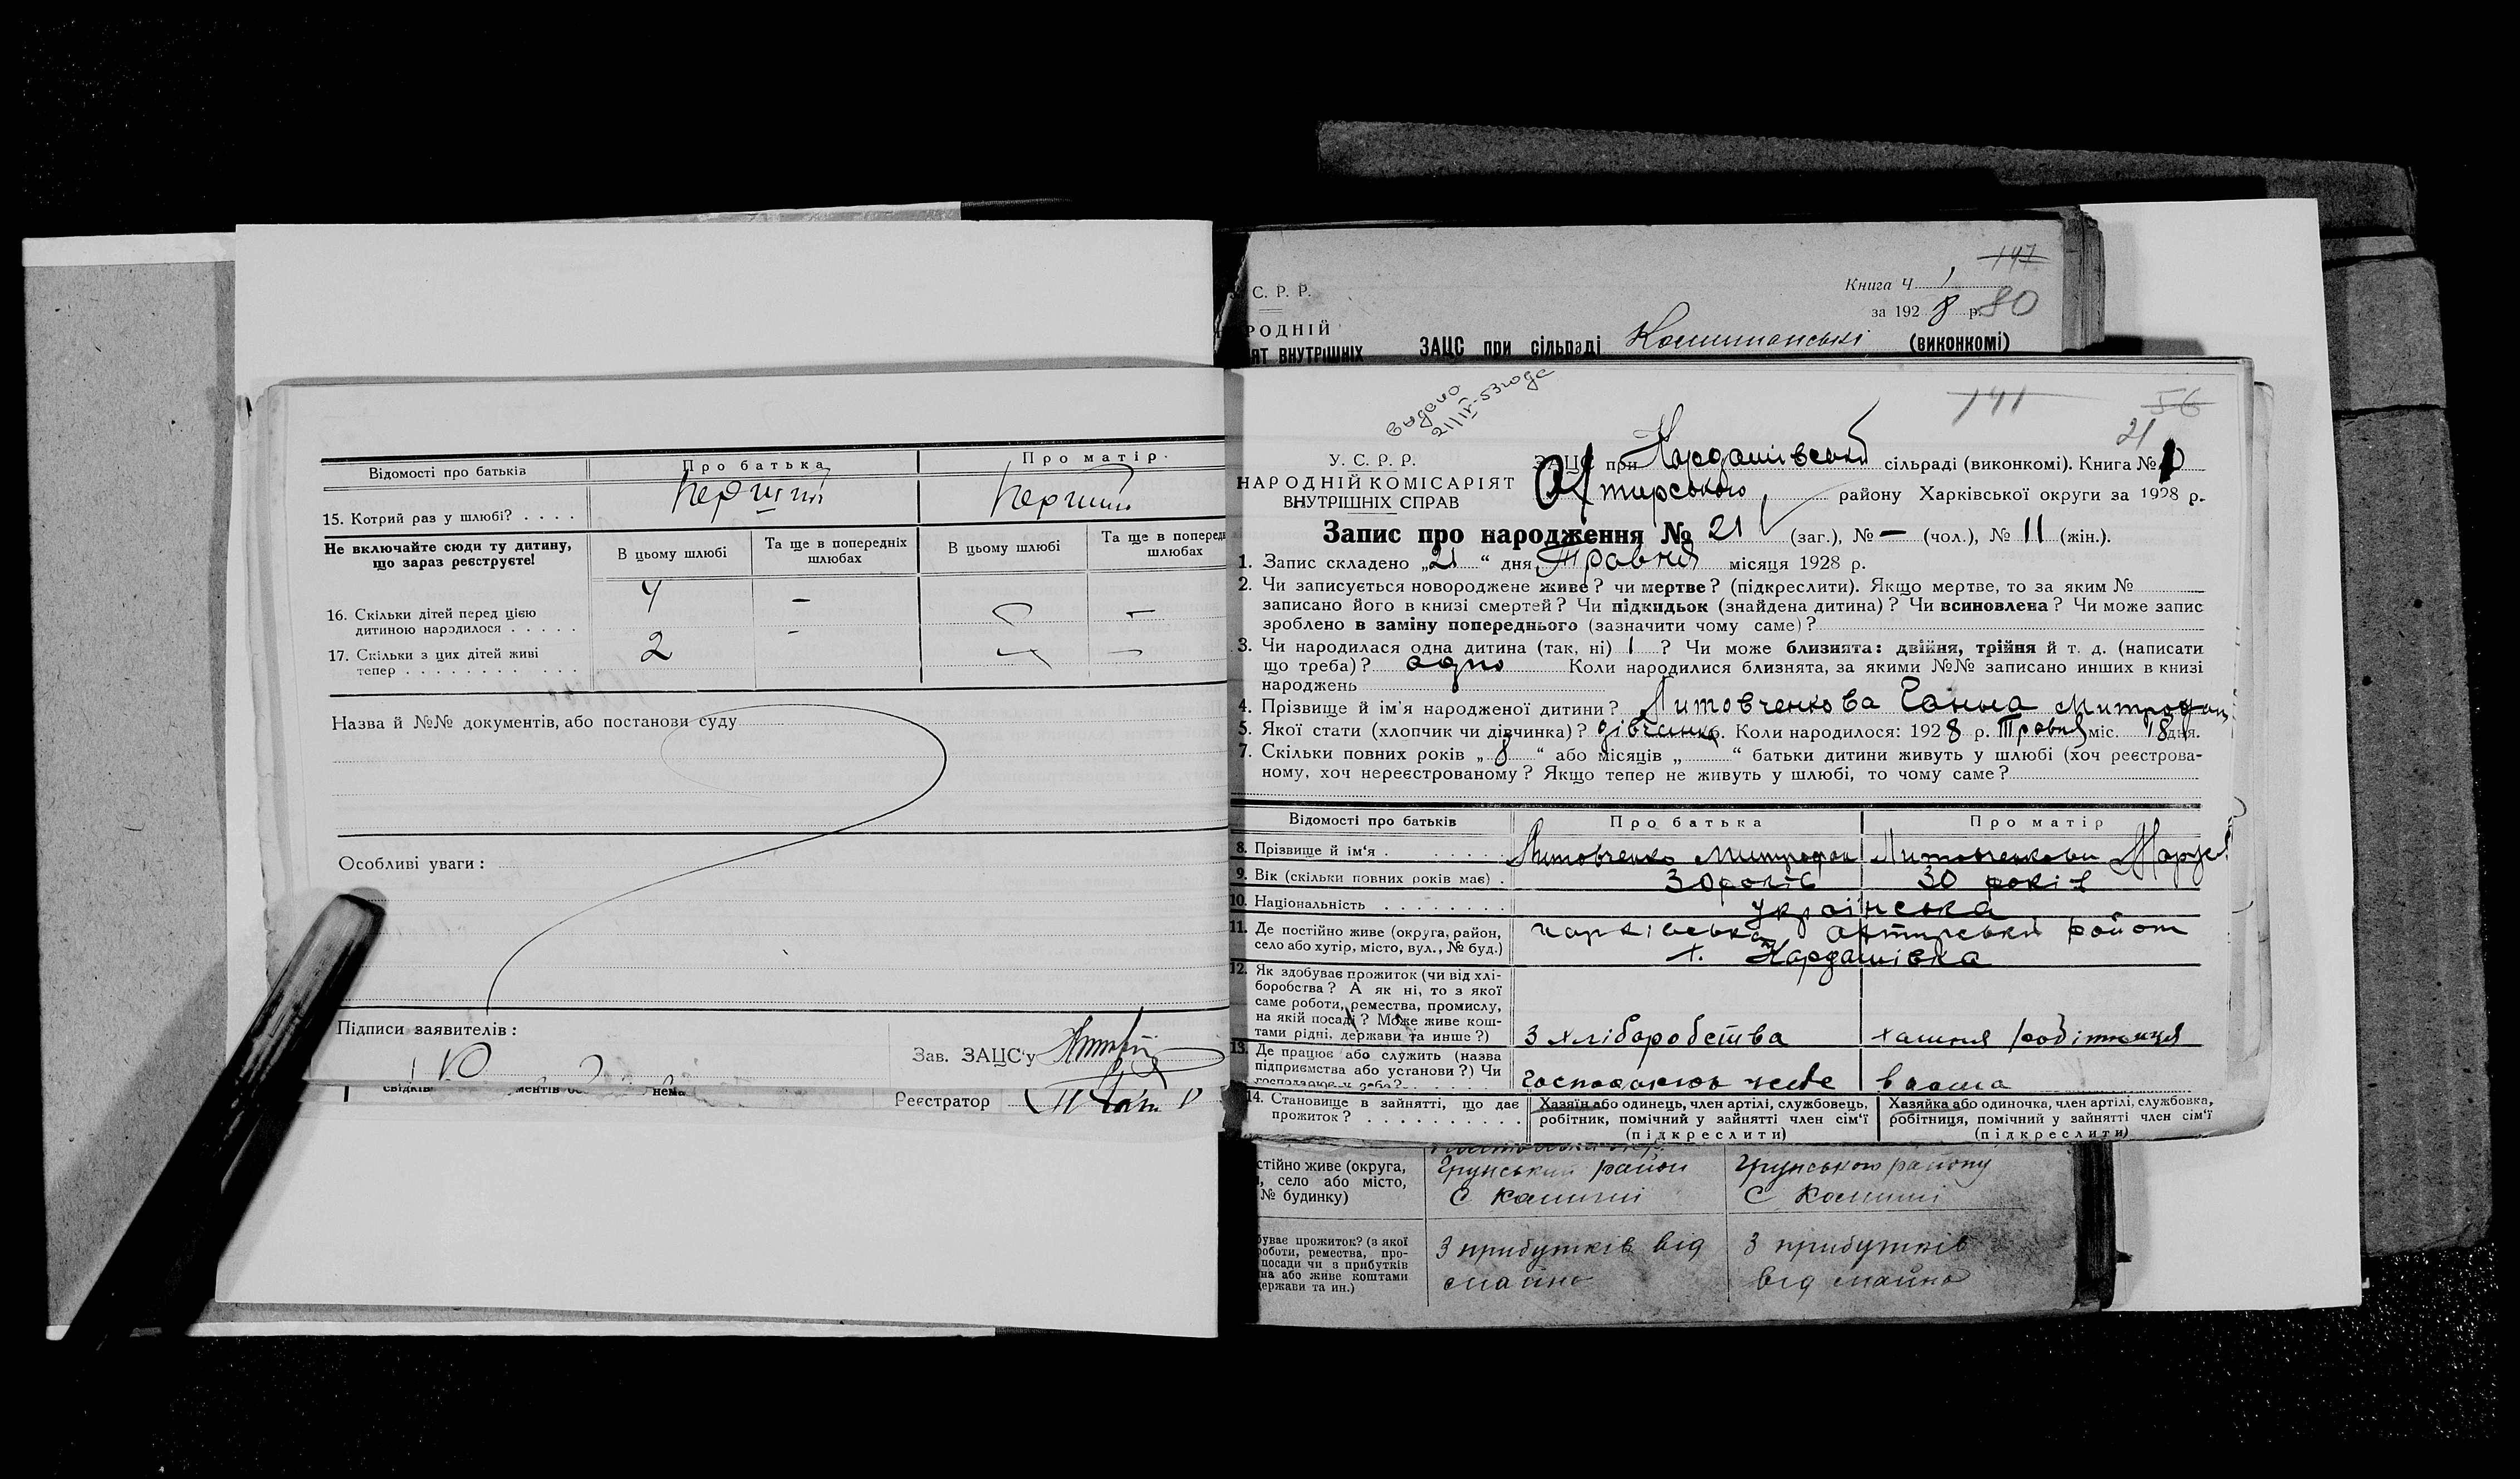 Відомості про батьків
Про батька
Про матір.
15. Котрий раз у шлюбі? . . . .
Перший
Перший
Не включайте сюди ту дитину,
що зараз реєструєте!
В цьому шлюбі
Та ще в попередніх
шлюбах
В цьому шлюбі
Та ще в поперед
шлюбах
16. Скільки дітей перед цією
дитиною народилося . . . . .
4 –
–
17. Скільки з цих дітей живі
тепер . . . . . . . . . . .
2 –
–
Назва й №№ документів, або постанови суду
Особливі уваги:
Підписи заявителів:
Зав. ЗАЦС'у
Реєстратор
С. Р. Р.
РОДНІЙ
ЯТ ВНУТРІШНІХ
147
Книга Ч. 1
за 1928 р. 80
ЗАЦС при сільраді (виконкомі)
видано
21/IV-53 года
141
56
21
У. С. Р. Р.
НАРОДНІЙ КОМІСАРІЯТ
ВНУТРІШНІХ СПРАВ
ЗАЦС при Кардашівській сільраді (виконкомі). Книга №
Охтирського району Харківської округи за 1928 р.
Запис про народження № 21 (заг.), № – (чол.), № 11 (жін.).
1. Запис складено „21“ дня Травня місяця 1928 р.
2. Чи записується новороджене живе? чи мертве? (підкреслити). Якщо мертве, то за яким №
записано його в книзі смертей? Чи підкидьок (знайдена дитина)? Чи всиновлена? Чи може запис
зроблено в заміну попереднього (зазначити чому саме)?
3. Чи народилася одна дитина (так, ні) 1 ? Чи може близнята: двійня, трійня й т. д. (написати
що треба)? одно Коли народилися близнята, за якими №№ записано инших в книзі
народжень
4. Прізвище й ім'я народженої дитини? Литовченкова Ганна Митрофан
5. Якої стати (хлопчик чи дівчинка)? дівчинка 6. Коли народилось: 1928 р. Травня міс. 18 дня.
7. Скільки повних років „8“ або місяців „ “ батьки дитини живуть у шлюбі (хоч реєстрова-
ному, хоч нереєстрованому? Якщо тепер не живуть у шлюбі, то чому саме?
Відомості про батьків
Про батька
Про матір
8. Прізвище й ім'я .
Литовченко Митрофан
Литовченкова
9. Вік (скільки повних років має) .
30 років
30 років
10. Національність . . . . . . . .
українська
11. Де постійно живе (округа, район,
село або хутір, місто, вул., № буд.)
харківська Охтирський район
х. Кардашівка
12. Як здобуває прожиток (чи від хлі-
боробства? А як ні, то з якої
саме роботи, ремества, промислу,
на якій посаді? Може живе кош-
тами рідні, держави та инше?)
З хліборобства
хатня робітниця
13. Де працює або служить (назва
підприємства або установи?) Чи
господарює у себе? . . . . . .
вдома
14. Становище в зайнятті, що дає
прожиток? . . . . . . . . . .
Хазяїн або одинець, член артілі, службовець,
робітник, помічний у зайнятті член сім'ї
(підкреслити)
Хазяйка або одиночка, член артілі, службовка,
робітниця, помічний у зайнятті член сім'ї
(підкреслити)
стійно живе (округа,
, село або місто,
№ будинку)
Грунський район
С Комиші
Грунського району
С Комиші
буває прожиток? (з якої
роботи, ремества, про-
посади чи з прибутків
на або живе коштами
держави та ин.)
З прибутків від
майна
З прибутків
від майна